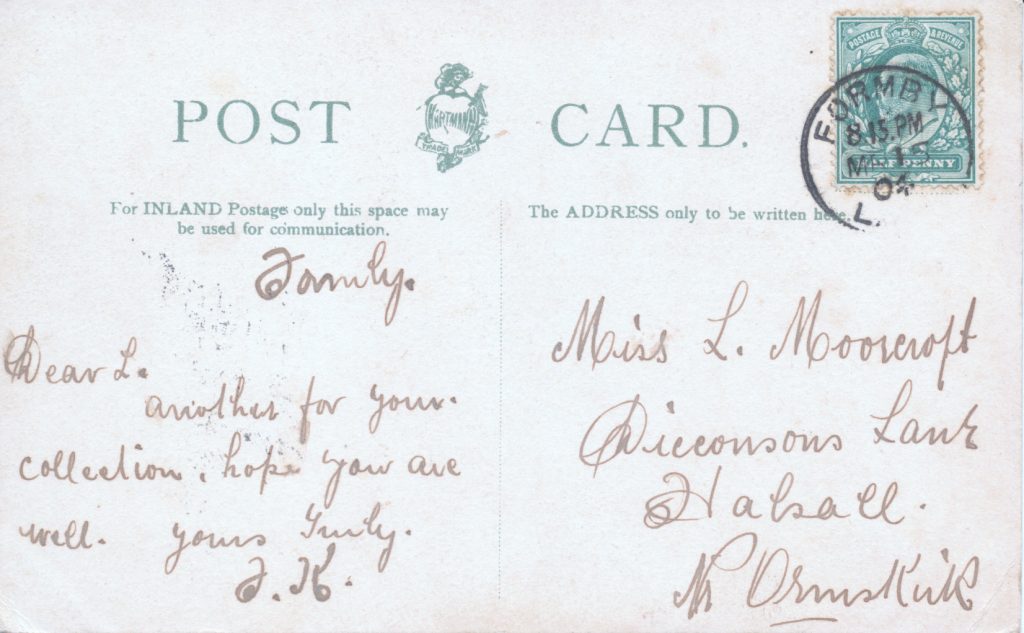 POST CARD.
HARTMANN
TRADE MARK
POSTAGE & REVENUE
HALFPENNY
FORMBY
8.15.PM
04
L.
For INLAND Postage only this space may
be used for communication.
Formby.
Dear L.
another for your
collection, hope you are
well. yours Truly.
F. K.
The ADDRESS only to be written here.
Miss L. Moorcroft
Dicconsons Lane
Halsall.
Nr Ormskirk